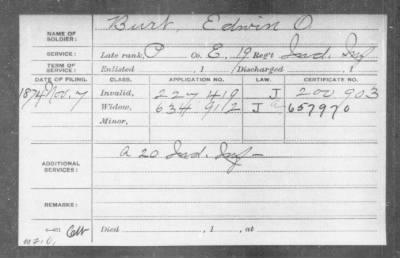 NAME OF SOLDIER: Burt, Edwin O
SERVICE: Late rank, P Co. E, 19 Reg't Ind. Inf
TERM OF SERVICE: Enlisted , 1 Discharged , 1
DATE OF FILING. CLASS. APPLICATION NO. LAW. CERTIFICATE NO.
1874 7 Invalid, 227 419 J 200 903
Widow, 634 912 J 657970
Minor,
ADDITIONAL SERVICES: A 20 Ind. Inf -
REMARKS:
Died , 1 , at